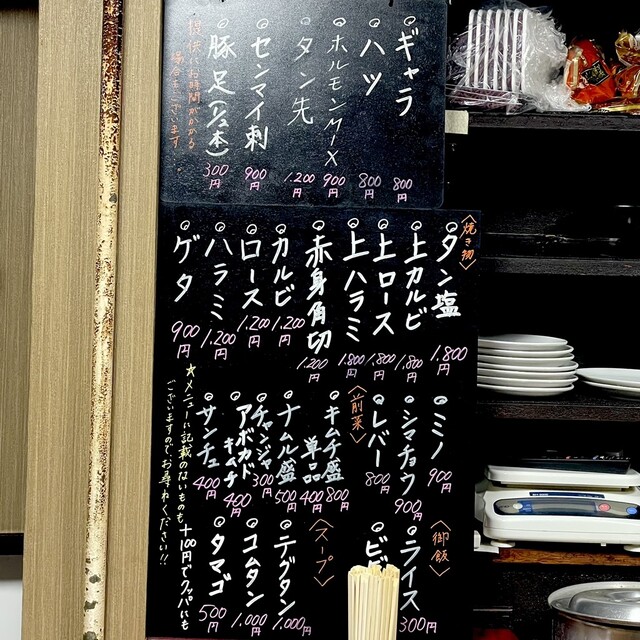 ギャラ 800円
ハツ 800円
ホルモンMIX 900円
タン先 1,200円
センマイ刺 900円
豚足(1/2本) 300円
提供にお時間がかかる
場合もございます
〈焼き物〉
タン塩 1,800円
上カルビ 1,800円
上ロース 1,800円
上ハラミ 1,800円
赤身角切 1,200円
カルビ 1,200円
ロース 1,200円
ハラミ 1,200円
ゲタ 900円
ミノ 900円
シマチョウ 900円
レバー 800円
〈前菜〉
キムチ盛 800円
単品 400円
ナムル盛 500円
チャンジャ 300円
アボカドキムチ 400円
サンチュ 400円
〈御飯〉
ライス 300円
ビビ
〈スープ〉
テグタン 1,000円
コムタン 1,000円
タマゴ 500円
☆メニューに記載のないものも
ございますので、お尋ねください!!
+100円でクッパにも